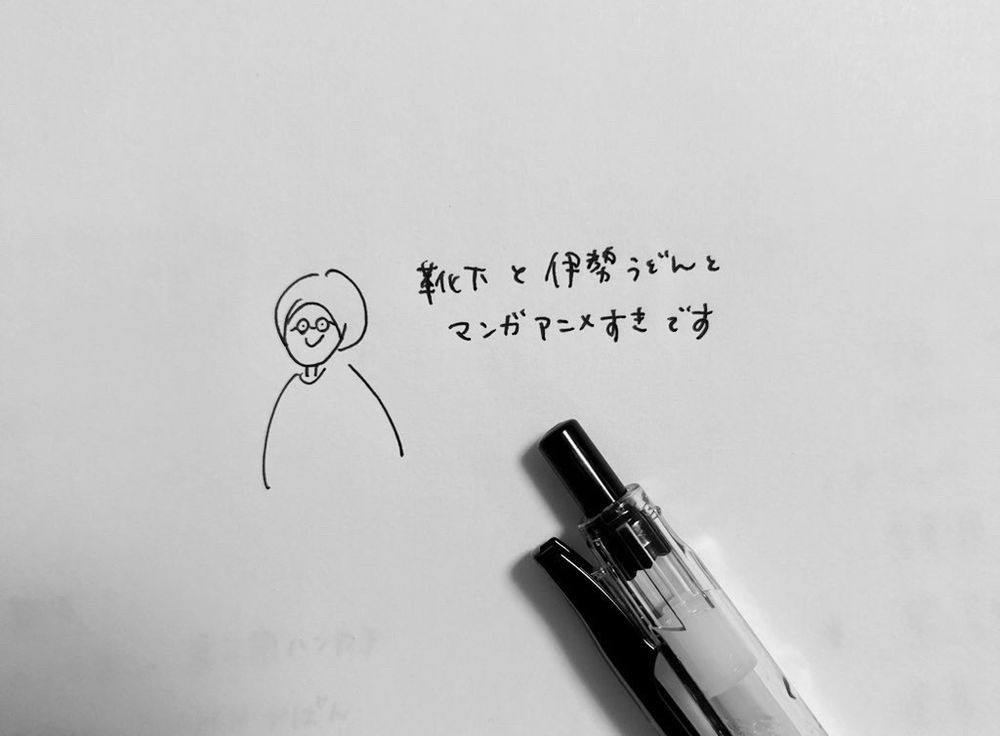 靴下と伊勢うどんと
マンガアニメすきです